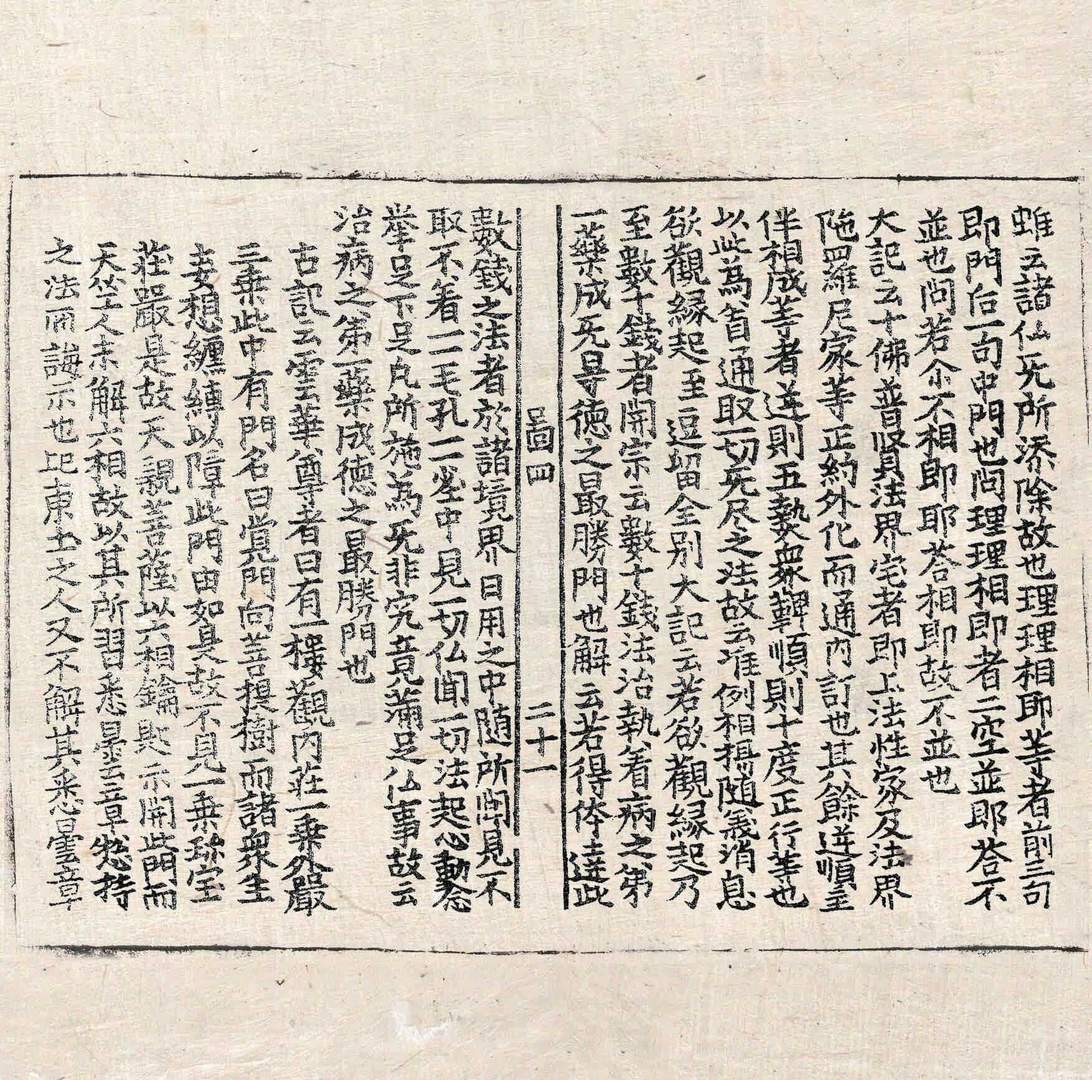 雖云諸仏旡所添除故也理理相即等者前三句
即門后一句中門也問理理相即者二空並即答不
並也問若尒不相即耶答相即故不並也
大記云十佛普賢法界宅者即上法性家及法界
陁羅尼家等正約外化而通内訂也其餘逆順主
伴相成等者逆則五熱衆鞞順則十度正行等也
以此為首通取一切旡尽之法故云准例相揚随義消息
欲觀縁起至逗留全别大記云若欲觀縁起乃
至數十錢者開宗云數十錢法治執着病之第
一藥成旡㝵德之最勝門也解云若得体達此
啚四 二十一
數錢之法者於諸境界日用之中随所聞見不
取不着一一毛孔一一塵中見一切仏聞一切法起心動念
举足下足凡所施為旡非究竟滿足仏事故云
治病之第一藥成德之最勝門也
古記云雲華尊者曰有一樓觀内莊一乘外嚴
三乘此中有門名曰覚門向菩提樹而諸衆生
妄想纏縛以障此門由如是故不見一乘珎宝
莊嚴是故天親菩薩以六相鑰匙示開此門而
天竺人未解六相故以其所習悉曇云章惣持
之法而誨示也比東土之人又不解其悉曇章